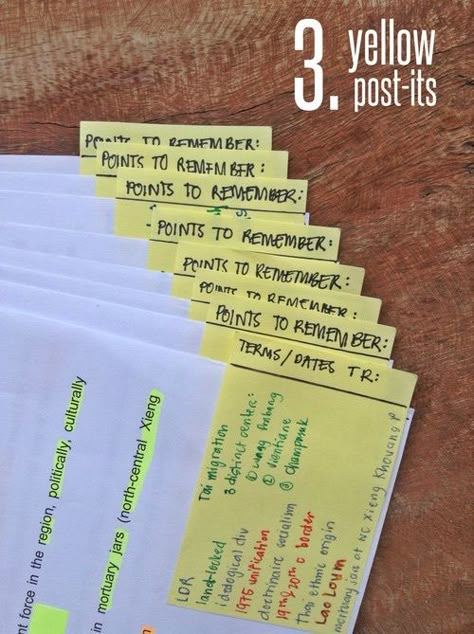 3. yellow
post-its
POINTS TO REMEMBER:
POINTS TO REMEMBER:
POINTS TO REMEMBER:
POINTS TO REMEMBER:
POINTS TO REMEMBER:
POINTS TO REMEMBER:
POINTS TO REMEMBER:
TERMS/DATES TR:
Tai migration
3 distinct centers:
① Luang Prabang
② Vientiane
③ Champasak
LDR
land-locked
ideological div
1975 unification
doctrinaire socialism
border
Thai ethnic origin
Lao Loum
at NC Xieng Khouang P
nt force in the region, politically, culturally
in mortuary jars (north-central Xieng